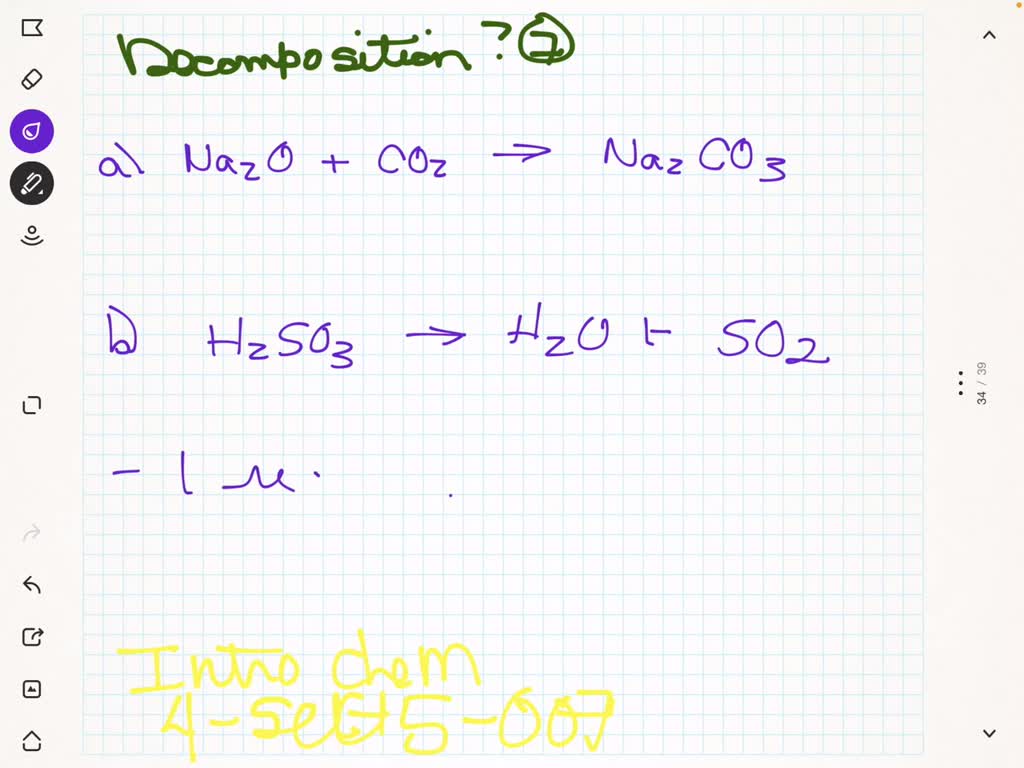 Decomposition? ②
a) Na₂O + CO₂ → Na₂CO₃
b) H₂SO₃ → H₂O + SO₂
- 1
34 / 39
Intro chem
4-set5-007